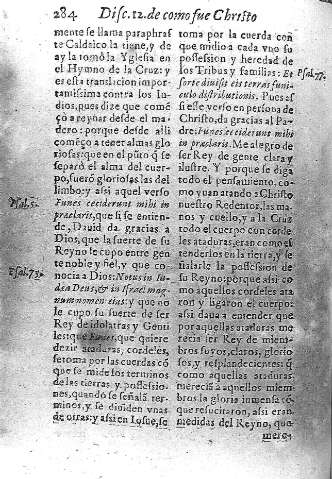 284 Disc. 12. de como fue Christo
mente se llama paraphras
te Caldaico la tiene, y de
ay la tomò la Yglesia en
el Hymno de la Cruz: y
es esta translacion impor-
tantissima contra los Iu-
dios, pues dize que comē-
çò a reynar desde el ma-
dero: porque desde alli
comēço a tener almas glo-
riosas: que en el pūto q̃ se
separò el alma del cuer-
po, fuerō gloriosas las del
limbo; y assi aquel verso
Psal. 5. Funes ceciderunt mihi in
præclaris, que si se entien-
de, Dauid da gracias a
Dios, que la suerte de su
Reyno le cupo entre gen
te noble y fiel, y que co-
Psal. 75. nocia a Dios: Notus in Iu-
dæa Deus, & in Israel mag-
num nomen eius: y que no
le cupo su suerte de ser
Rey de idolatras y Genti
les: que Funes, que quiere
dezir ataduras, cordeles,
se toma por las cuerdas cō
que se mide los terminos
de las tierras y possessio-
nes, quando se señalā ter-
minos, y se diuiden vnas
de otras: y assi en Iosue, se
toma por la cuerda con
que midio a cada vno su
possession y heredad de
los Tribus y familias: Et Psal. 77.
sorte diuisit eis terras funi-
culo distributionis. Pues as
si esse verso en persona de
Christo, da gracias al Pa-
dre: Funes ceciderunt mihi
in præclaris. Me alegro de
ser Rey de gente clara y
ilustre. Y porque se diga
todo el pensamiento, co-
mo yuan atando a Christo
nuestro Redentor, las ma-
nos y cuello, y a la Cruz
todo el cuerpo con corde
les ataduras, eran como el
tenderlos en la tierra, y se
ñalarle la possession de
su Reyno: porque assi co
mo aquellos cordeles ata
ron y ligaron el cuerpo:
assi daua a entender que
por aquellas ataduras me
recia ser Rey de miem-
bros suyos, claros, glorio
sos, y resplandecientes: q̃
como aquellas ataduras
merecia a aquellos miem
bros la gloria inmensa cō
que resucitaron, assi eran
medidas del Reyno, que
mere-